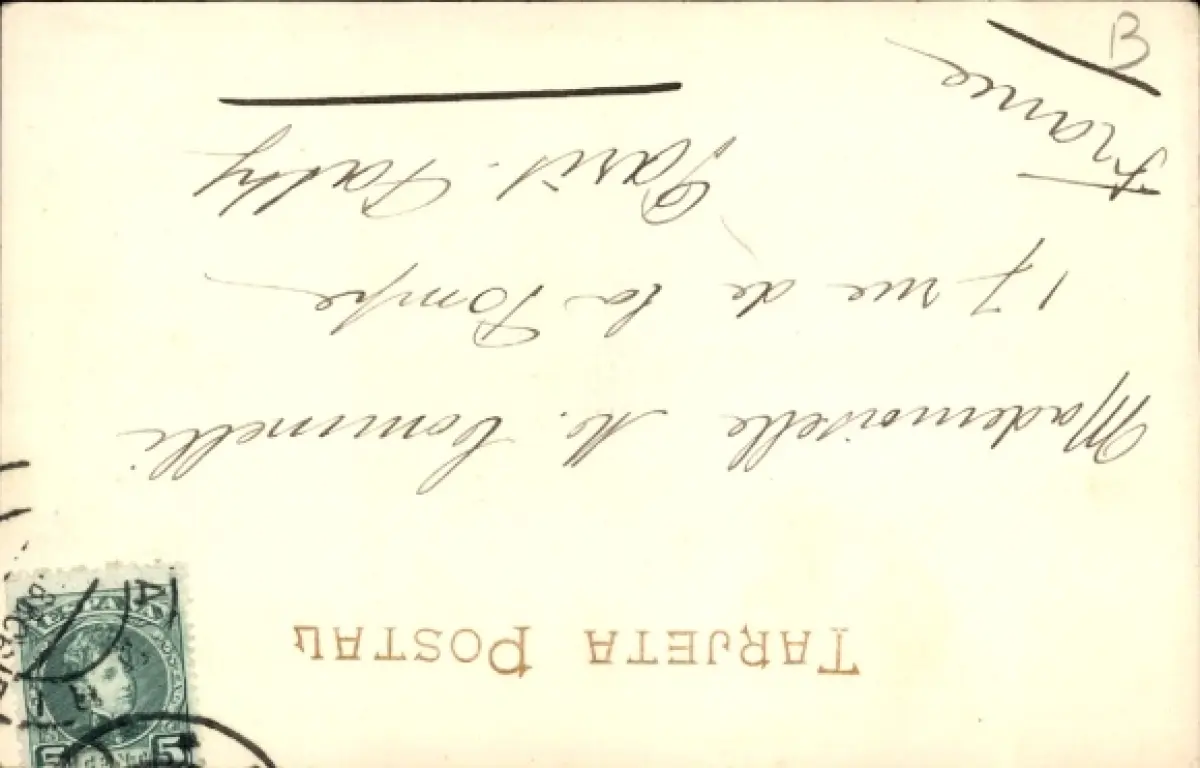 TARJETA POSTAL
Mademoiselle M.
17 rue de la Pompe
Paris. Passy
France
B
ESPAÑA
5 5